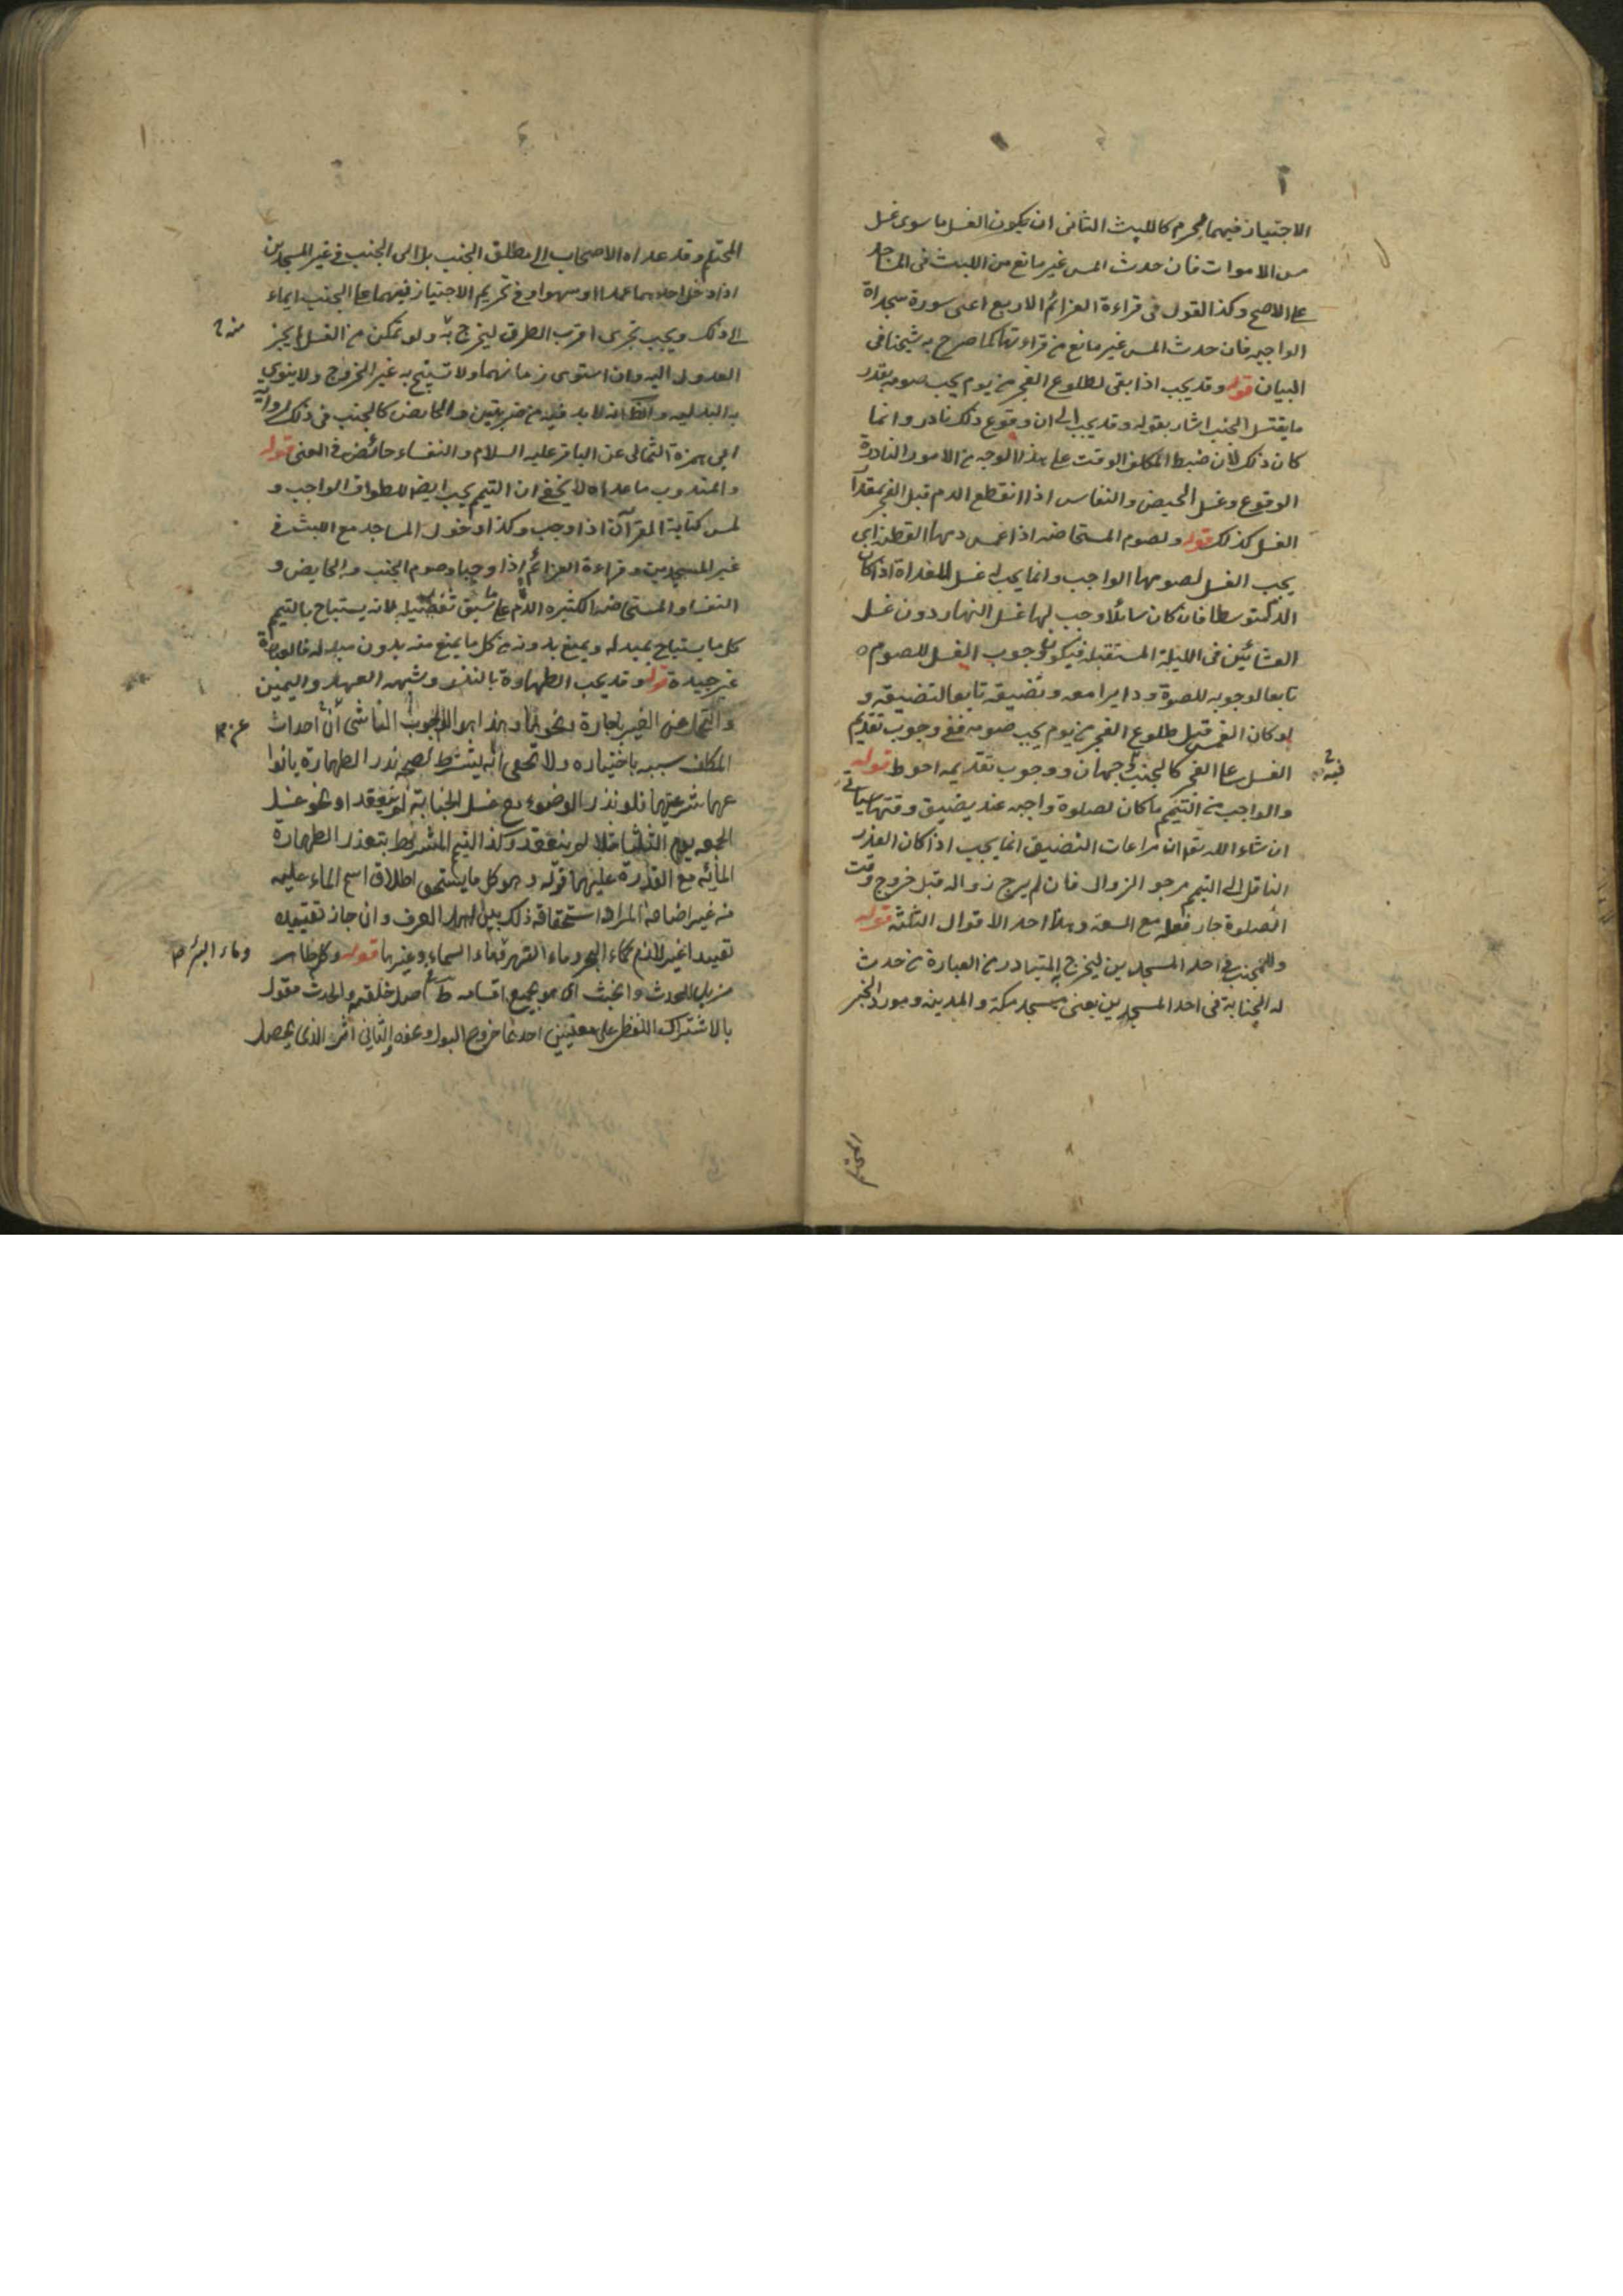 الاجتياز فيهما محرم كاللبث الثاني ان يكون الغسل ما سوى غسل
مس الاموات فان حدث المس غير مانع من اللبث في المساجد
على الاصح وكذا القول في قراءة العزائم الاربع اعنى سورة سجداة
الواجبه فان حدث المس غير مانع من قراءتها كما صرح به شيخنا في
البيان قوله وقد يجب اذا بقى لطلوع الفجر من يوم يجب صومه بقدر
ما يغتسل الجنب اشار بقوله وقد يجب الى ان وقوع ذلك نادر وانما
كان ذلك لان ضبط المكلف الوقت على هذا الوجه من الامور النادرة
الوقوع وغسل الحيض والنفاس اذا انقطع الدم قبل الفجر بمقدار
الغسل كذلك قوله ولصوم المستحاضه اذا غمس دمها القطنه اى
يجب الغسل لصومها الواجب وانما يجب غسل للغداة اذا كان
الدم متوسطا فان كان سائلا وجب لها غسل النهار دون غسل
العشائين في الليلة المستقبله فيكون وجوب الغسل للصوم
تابعا لوجوبه للصلوة ودايرا معه وتضيقه تابعا لتضيقه و
لو كان الغمس قبل طلوع الفجر من يوم يجب صومه ففى وجوب تقديم
الغسل على الفجر كالجنب وجهان ووجوب تقديمه احوط قوله
والواجب من التيمم ما كان لصلوة واجبه عند يضيق وقتها سياتى
ان شاء الله تع ان مراعات التضيق انما يجب اذا كان العذر
الناقل الى التيمم مرجو الزوال فان لم يرج زواله قبل خروج وقت
الصلوة جاز فعله مع السعة وهذا احد الاقوال الثلثة قوله
وللمجنب في احد المسجدين ليخرج به المتبادر من العبارة من حدث
له الجنابة في احد المسجدين يعنى مسجد مكة والمدينه ومورد الخبر
المحتلم
المحتلم وقد عداه الاصحاب الى مطلق الجنب بل الى الجنب في غير المسجدين
اذا دخل احدهما عمدا او سهوا وفي تحريم الاجتياز فيهما على الجنب ايماء
الى ذلك ويجب تحرى اقرب الطرق ليخرج به ولو تمكن من الغسل لم يجز
العدول اليه وان استوى زمانهما ولا تستبيح به غير الخروج ولا ينوى
به البدليه والظ انه لابد فيه من ضربتين والحايض كالجنب في ذلك لرواية
ابى حمزة الثمالى عن الباقر عليه السلام والنفساء حائض في المعنى قوله
والمندوب ما عداه لا يخفى ان التيمم يجب ايض للطواف الواجب و
لمس كتابة القرآن اذا وجب وكذا دخول المساجد مع اللبث في
غير المسجدين وقراءة العزائم اذا وجبا وصوم الجنب والحايض و
النفساء والمستحاضه الكثيره الدم على ما سبق تفصيله لانه يستباح بالتيمم
كل ما يستباح بمبدله ويمنع بدونه من كل ما يمنع منه بدون مبدله فالعبارة
غير جيدة قوله وقد يجب الطهارة بالنذر وشبهه العهد واليمين
المكلف سببه باختياره ولا يخفى انه يشترط لصحه نذر الطهارة بانواعها
شرعيتها فلو نذر الوضوء مع غسل الجنابة لم ينعقد او نحو غسل
الجمعه يوم الثلثا مثلا لم ينعقد وكذا التيمم المشروط بتعذر الطهارة
المائيه مع القدرة عليهما قوله وهو كل ما يستحق اطلاق اسم الماء عليه
من غير اضافة المراد استحقاقه ذلك بين اهل العرف وان جاز تقييده
تقييدا غير لازم كماء البحر وماء النهر وماء السماء وغيرها قوله وكله طاهر
وماء البئر صح
مزيل للحدث والخبث اى هو بجميع اقسامه ط على اصل خلقته والحدث مقول
بالاشتراك اللفظى على معنيين احدهما خروج البول وغيره والثاني اثر الذى يحصل